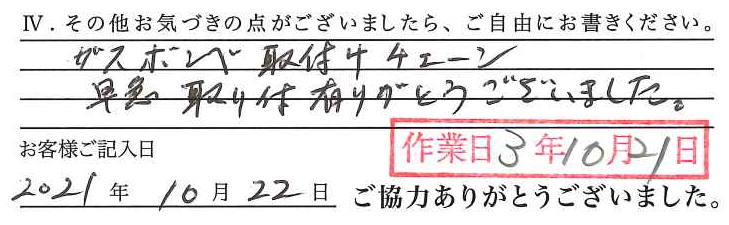 Ⅳ．その他お気づきの点がございましたら、ご自由にお書きください。
ガスボンベ 取付け チェーン
早急 取り付 有りがとうございました。
お客様ご記入日
作業日3年10月21日
2021年10月22日
ご協力ありがとうございました。